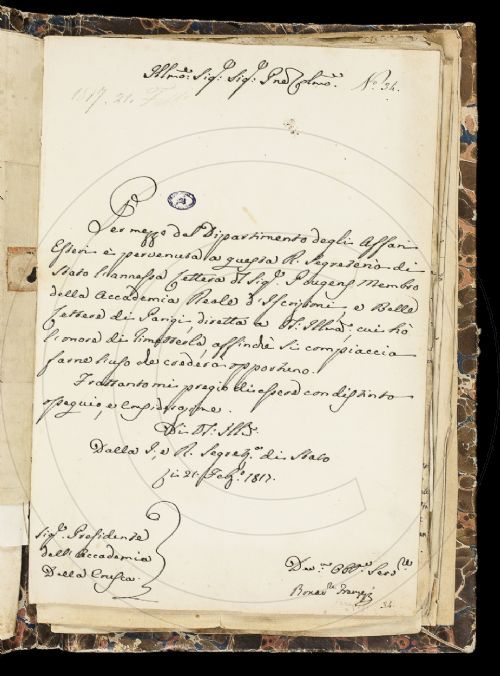 Illmo: Sig:e Sig:e Pne Colmo:
No: 34.
1817. 21. F
Per mezzo del Dipartimento degli Affari
Esteri è pervenuta a questa R. Segreteria di
Stato l'annessa Lettera di Sig:e Pougens Membro
della Accademia Reale d'Iscrizioni, e Belle
Lettere di Parigi, diretta a VS: Illma; cui hò
l'onore di rimetterla, affinchè si compiaccia
farne l'uso che crederà opportuno.
Frattanto mi pregio di essere con distinto
ossequio, e considerazione.
Di VS: Illma
Dalla I, e R. Segreta di Stato
Li 21 Febo 1817.
Sig:e Presidente
dell'Accademia
Della Crusca
Devmo Obbmo Servre
34.